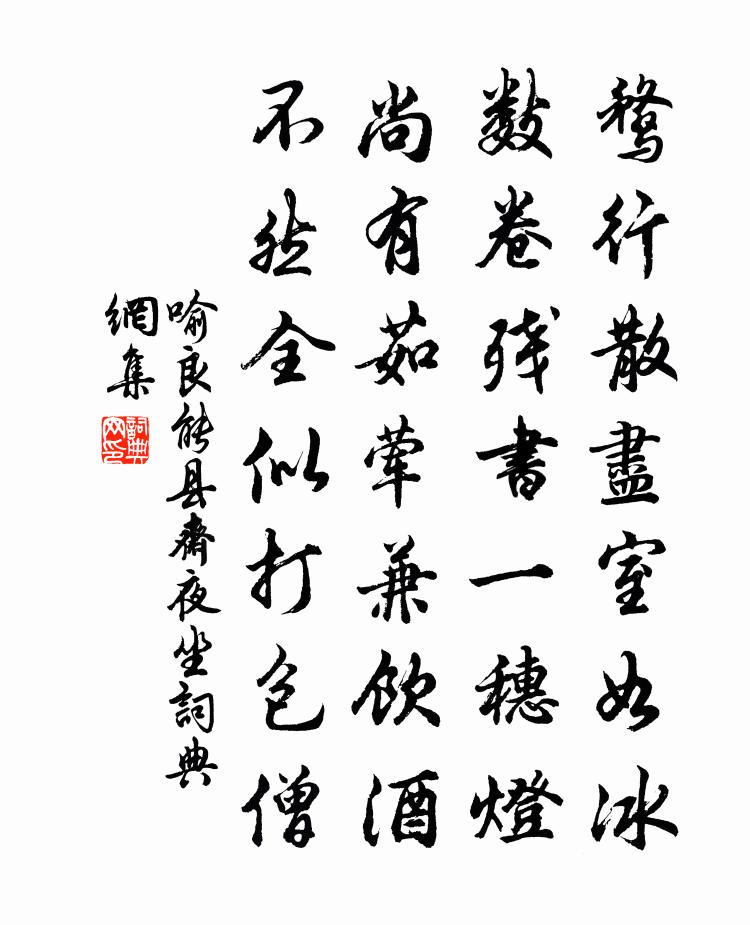 鶩行散盡室如冰
數卷残書一穗燈
尚有茹葷兼飲酒
不然全似打包僧
喻良能县齋夜坐詞典
網集
詞典网印